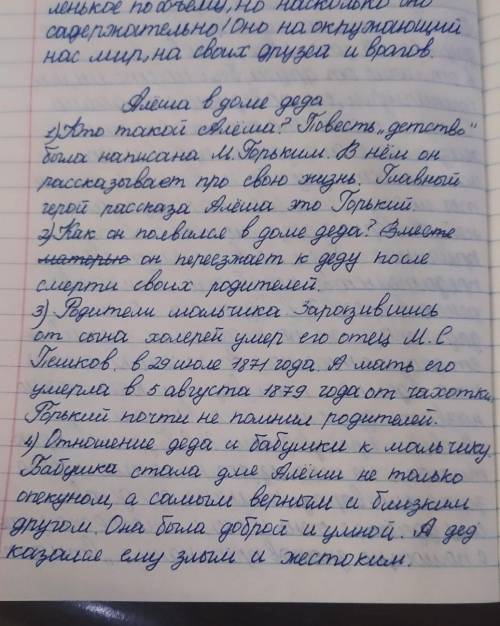 ленькое по объёму, но насколько оно
содержательно! Оно на окружающий
нас мир, на своих друзеа и врагов.
Алёша в доме деда
1) Кто такой Алёша? Повесть „детство"
была написана М. Горьким. В нём он
рассказывает про свою жизнь. Главный
герой рассказа Алёша это Горький.
2) Как он появился в доме деда? Вместе
матерью он переезжает к деду после
смерти своих родителей.
3) Родители мальчика Заразившись
от сына холерей умер его отец М. С
Пешков, в 29 июле 1871 года. А мать его
умерла в 5 августа 1879 года от чахотки.
Горький почти не помнил родителей.
4) Отношение деда и бабушки к мальчику.
Бабушка стала для Алёши не только
опекуном, а самым верным и близким
другом. Она была доброй и умной. А дед
казался ему злым и жестоким.